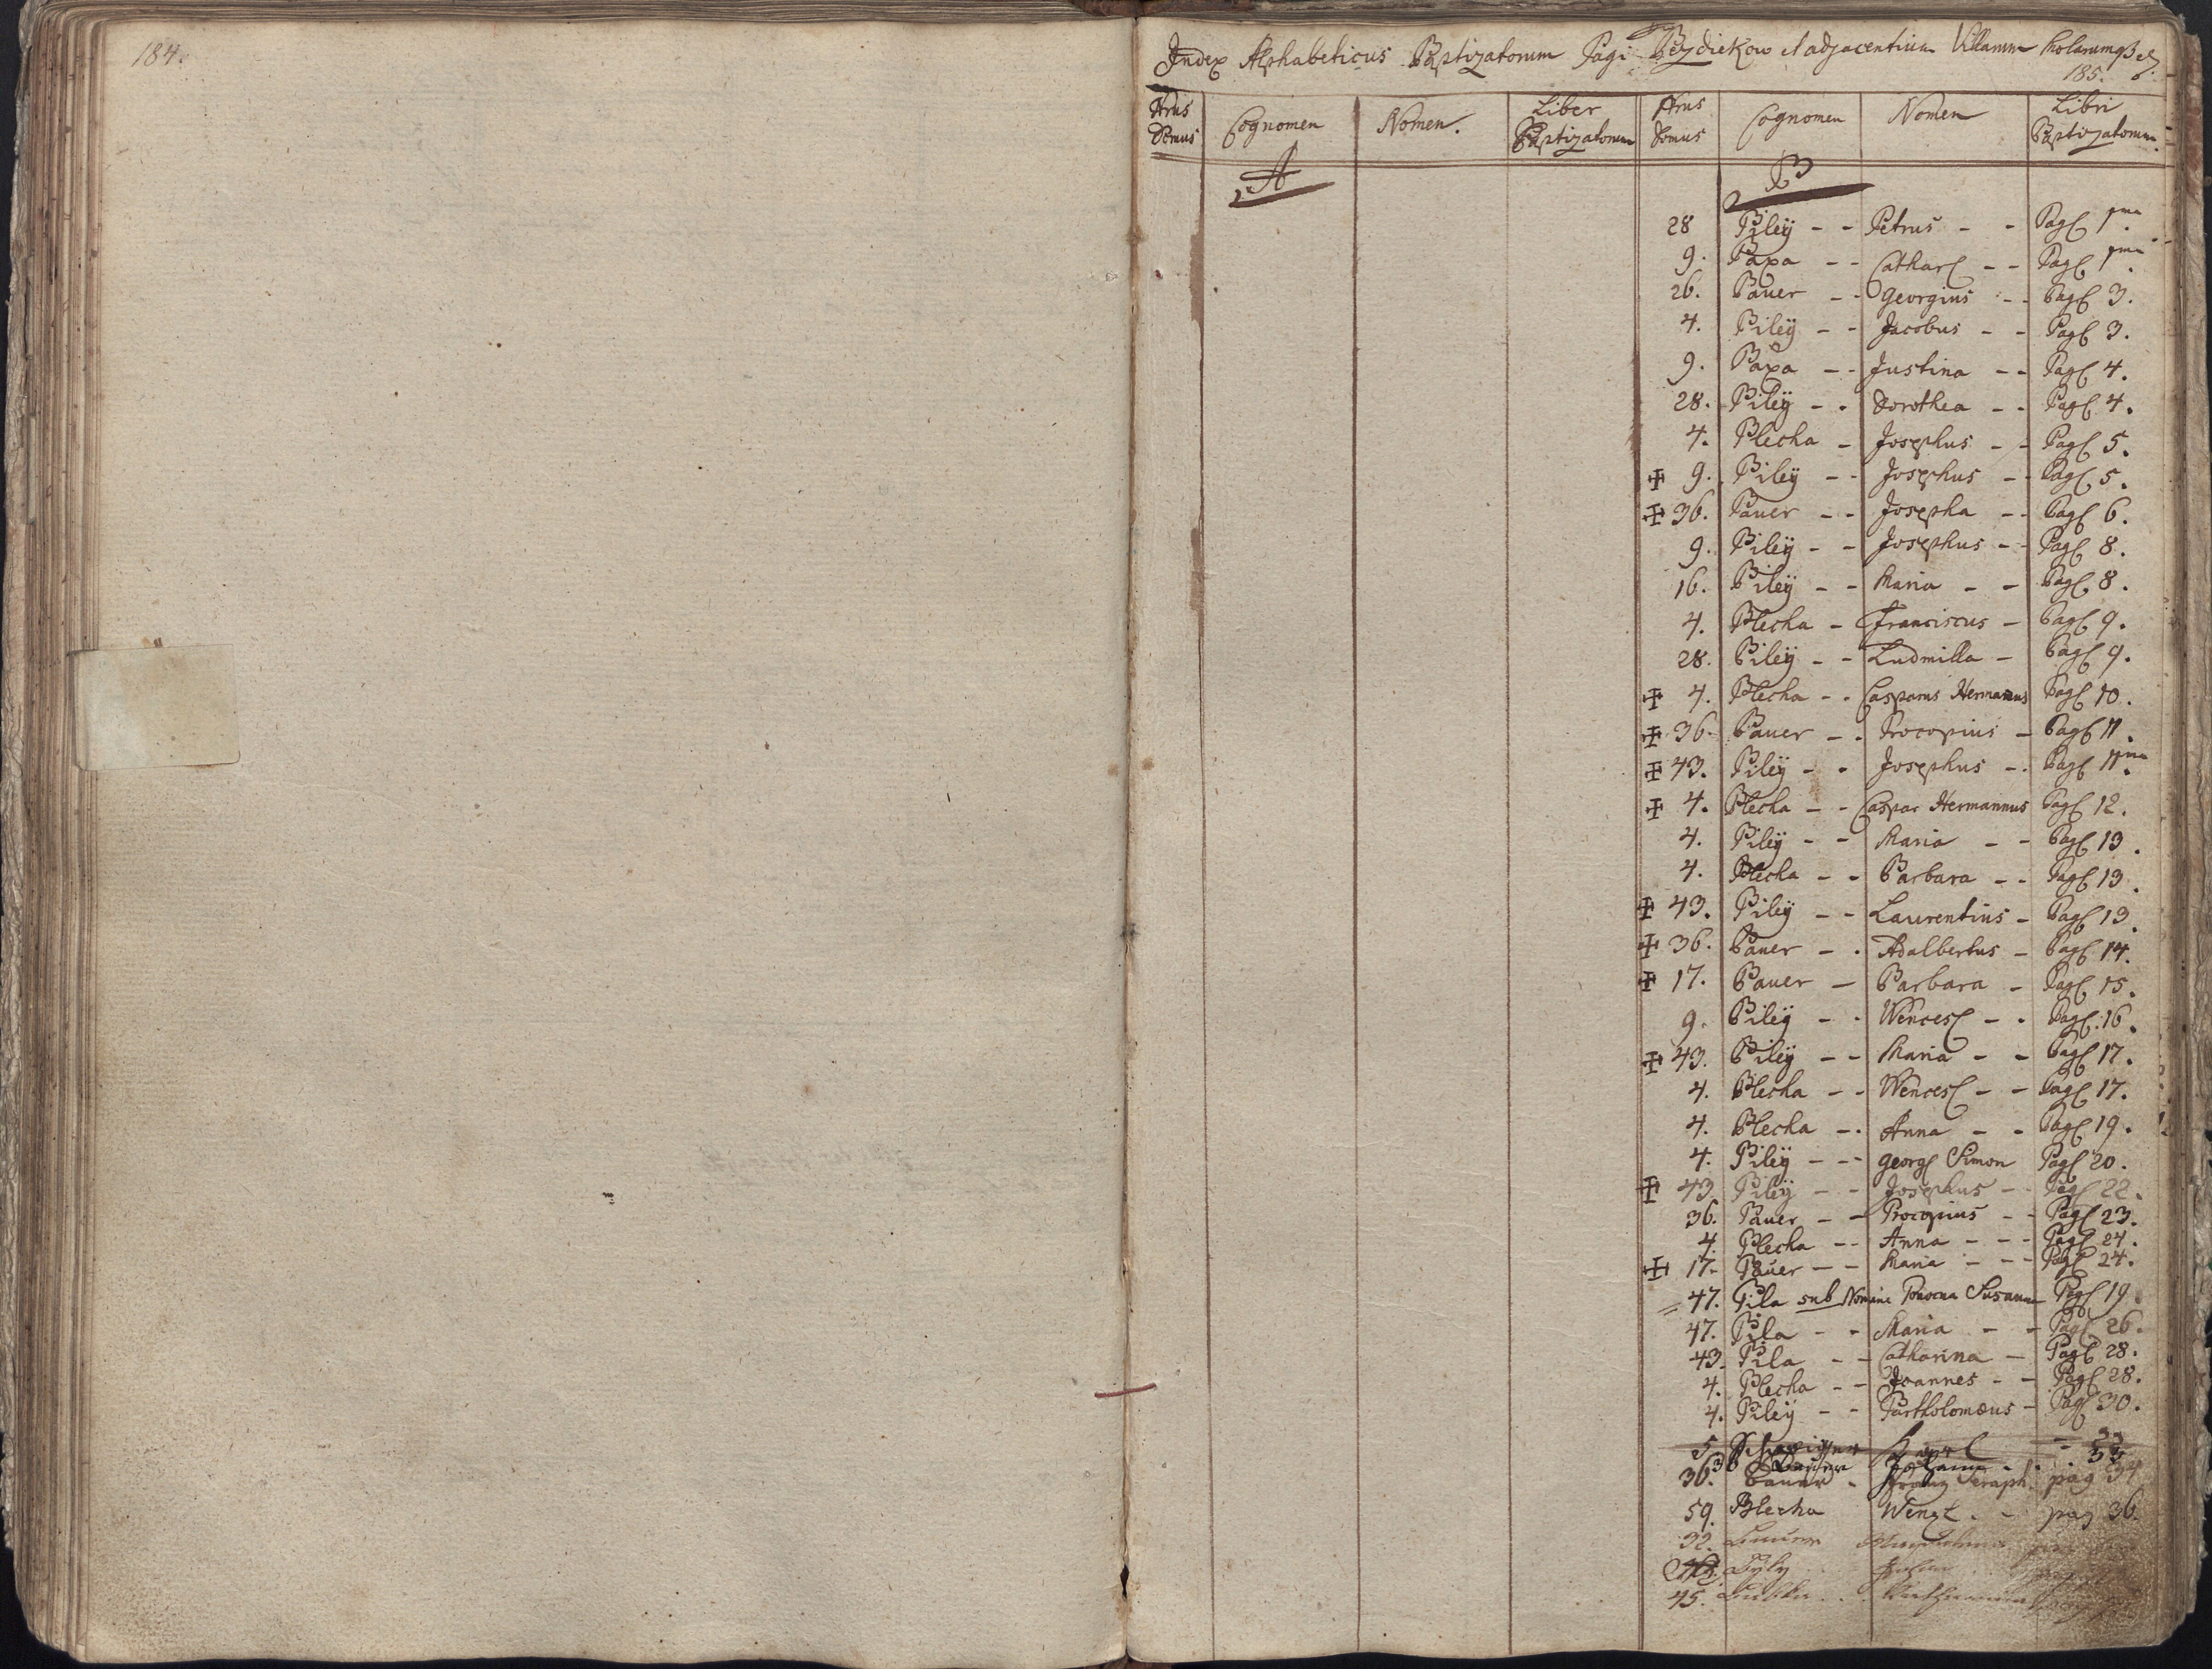 184.
Index Alphabeticus Baptizatorum Pagi Bezdiekow et adjacentium Villarum
185.
Nrus Domus Cognomen Nomen. Liber Baptizatorum Nrus Domus Cognomen Nomen Libri Baptizatorum
A B
28 Biley - - Petrus - - Pag 1ma
9. Baxa - - Cathar - - Pag 1ma
26. Bauer - - Georgius - - Pag 3.
4. Biley - - Jacobus - - Pag 3.
9. Baxa - - Justina - - Pag 4.
28. Biley - - Dorothea - - Pag 4.
4. Blecha - Josephus - - Pag 5.
✠ 9. Biley - - Josephus - - Pag 5.
✠ 36. Bauer - - Josepha - - Pag 6.
9. Biley - - Josephus - - Pag 8.
16. Biley - - Maria - - Pag 8.
4. Blecha - Franciscus - Pag 9.
28. Biley - - Ludmilla - Pag 9.
✠ 4. Blecha - - Casparus Hermanus Pag 10.
✠ 36. Bauer - - Procopius - Pag 11.
✠ 43. Biley - - Josephus - - Pag 11ma
✠ 4. Blecha - - Caspar Hermannus Pag 12.
4. Biley - - Maria - - Pag 13.
4. Blecha - - Barbara - - Pag 13.
✠ 43. Biley - - Laurentius - Pag 13.
✠ 36. Bauer - - Adalbertus - Pag 14.
✠ 17. Bauer - Barbara - Pag 15.
9. Biley - - Wences - - Pag. 16.
✠ 43. Biley - - Maria - - Pag 17.
4. Blecha - - Wences - - Pag 17.
4. Blecha - - Anna - - Pag 19.
4. Biley - - - Georg Simon Pag 20.
✠ 43. Biley - - Josephus - - Pag 22.
36. Bauer - - Procopius - - Pag 23.
4. Blecha - - Anna - - - Pag 24.
✠ 17. Bauer - - Maria - - - Pag 24.
47. Bila sub Nomine Susanna Pag 19.
47. Bila - - Maria - - Pag 26.
43. Bila - - Catharina - Pag 28.
4. Blecha - - Joannes - - Pag 28.
4. Biley - - Bartholomæus - Pag 30.
5 - 33
36 Bauer Johann - - 33
36. Bauer - Franz Seraph. pag 34
59. Blecha Wenzl. - pag 36.
32. Bauer
Byly
45.